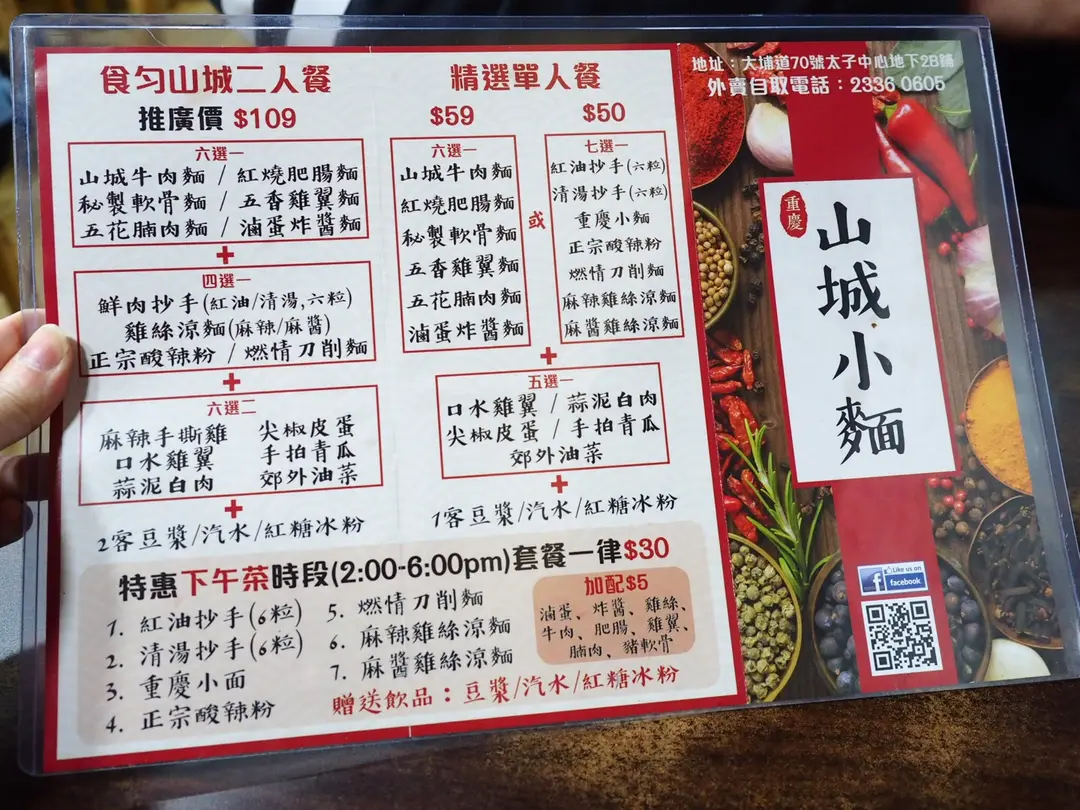 食匀山城二人餐
推廣價 $109
六選一
山城牛肉麵 / 紅燒肥腸麵
秘製軟骨麵 / 五香雞翼麵
五花腩肉麵 / 滷蛋炸醬麵
+
四選一
鮮肉抄手(紅油/清湯,六粒)
雞絲涼麵(麻辣/麻醬)
正宗酸辣粉 / 燃情刀削麵
+
六選二
麻辣手撕雞 尖椒皮蛋
口水雞翼 手拍青瓜
蒜泥白肉 郊外油菜
+
2客豆漿/汽水/紅糖冰粉
精選單人餐
$59
六選一
山城牛肉麵
紅燒肥腸麵
秘製軟骨麵
五香雞翼麵
五花腩肉麵
滷蛋炸醬麵
或
$50
七選一
紅油抄手(六粒)
清湯抄手(六粒)
重慶小麵
正宗酸辣粉
燃情刀削麵
麻辣雞絲涼麵
麻醬雞絲涼麵
+
五選一
口水雞翼 / 蒜泥白肉
尖椒皮蛋 / 手拍青瓜
郊外油菜
+
1客豆漿/汽水/紅糖冰粉
特惠下午茶時段(2:00-6:00pm)套餐一律$30
1. 紅油抄手(6粒)
2. 清湯抄手(6粒)
3. 重慶小面
4. 正宗酸辣粉
5. 燃情刀削麵
6. 麻辣雞絲涼麵
7. 麻醬雞絲涼麵
加配$5
滷蛋、炸醬、雞絲、
牛肉、肥腸、雞翼、
腩肉、豬軟骨
贈送飲品：豆漿/汽水/紅糖冰粉
地址：大埔道70號太子中心地下2B舖
外賣自取電話：2336 0605
重慶
山城小麵
Like us on
facebook